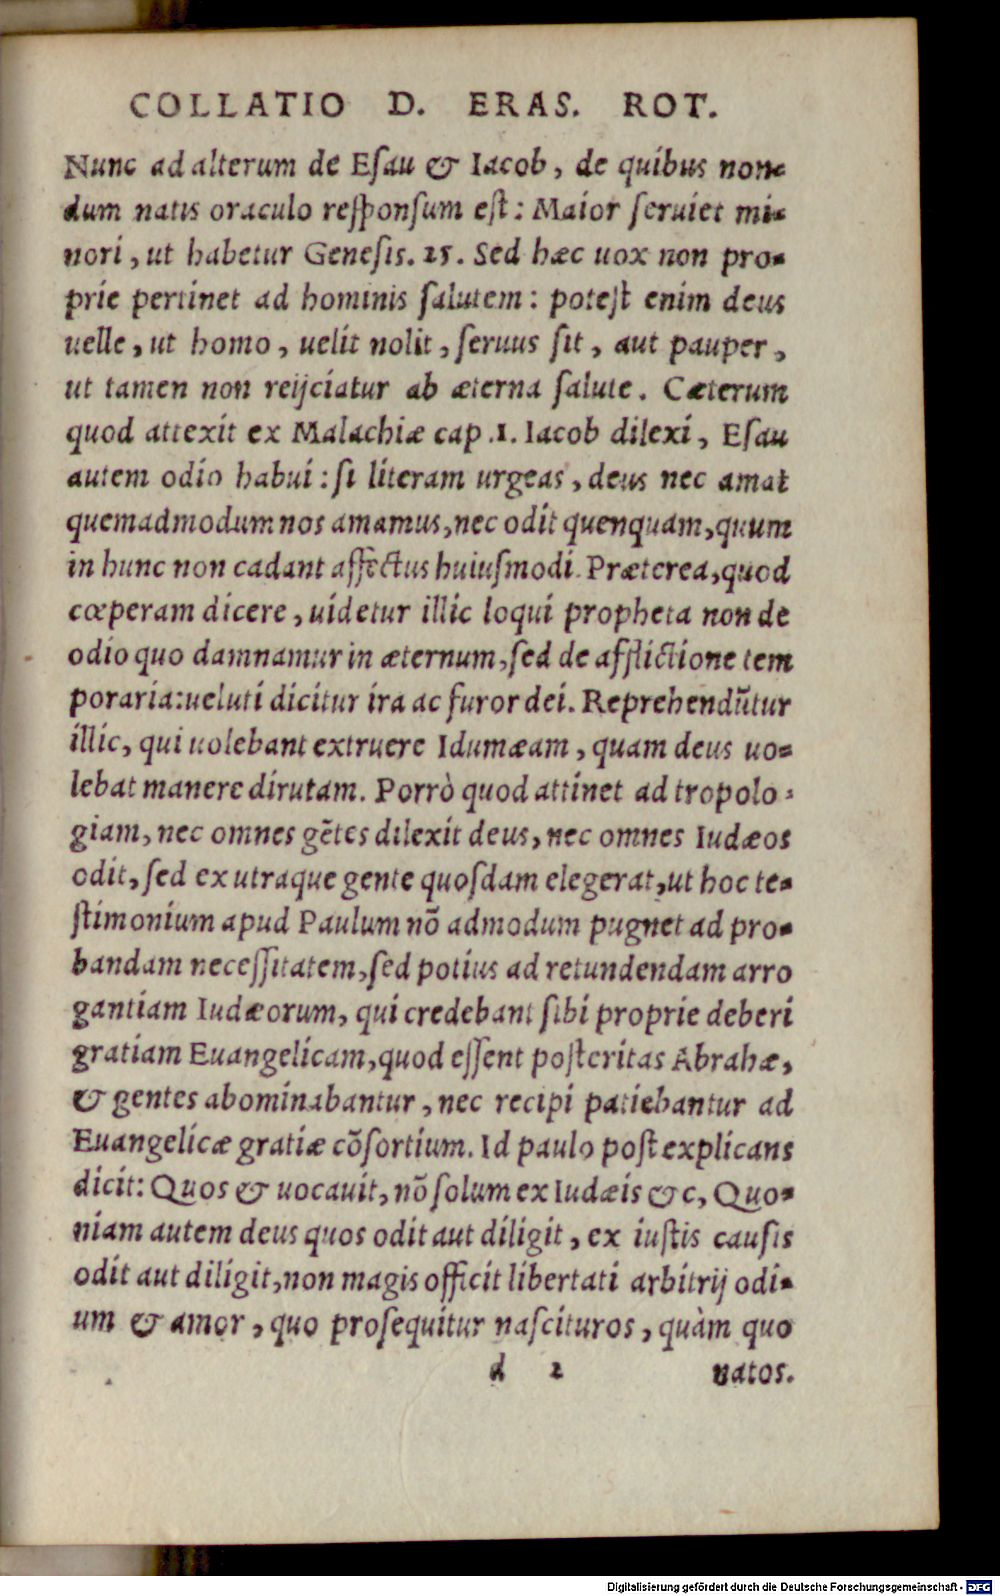 COLLATIO D. ERAS. ROT.
Nunc ad alterum de Eſau & Iacob, de quibus non⸗
dum natis oraculo reſponſum eſt: Maior ſeruiet mi⸗
nori, ut habetur Geneſis. 25. Sed hæc uox non pro⸗
prie pertinet ad hominis ſalutem: poteſt enim deus
uelle, ut homo, uelit nolit, ſeruus ſit, aut pauper,
ut tamen non reijciatur ab æterna ſalute. Cæterum
quod attexit ex Malachiæ cap .1. Iacob dilexi, Eſau
autem odio habui: ſi literam urgeas, deus nec amat
quemadmodum nos amamus, nec odit quenquam, quum
in hunc non cadant affectus huiuſmodi. Præterea, quod
cœperam dicere, uidetur illic loqui propheta non de
odio quo damnamur in æternum, ſed de afflictione tem
poraria: ueluti dicitur ira ac furor dei. Reprehendūtur
illic, qui uolebant extruere Idumæam, quam deus uo⸗
lebat manere dirutam. Porrò quod attinet ad tropolo⸗
giam, nec omnes gētes dilexit deus, nec omnes Iudæos
odit, ſed ex utraque gente quoſdam elegerat, ut hoc te⸗
ſtimonium apud Paulum nō admodum pugnet ad pro⸗
bandam neceſſitatem, ſed potius ad retundendam arro
gantiam Iudæorum, qui credebant ſibi proprie deberi
gratiam Euangelicam, quod eſſent poſteritas Abrahæ,
& gentes abominabantur, nec recipi patiebantur ad
Euangelicæ gratiæ cōſortium. Id paulo poſt explicans
dicit: Quos & uocauit, nō ſolum ex Iudæis &c, Quo⸗
niam autem deus quos odit aut diligit, ex iuſtis cauſis
odit aut diligit, non magis officit libertati arbitrij odi⸗
um & amor, quo proſequitur naſcituros, quàm quo
d 2 natos.
Digitalisierung gefördert durch die Deutsche Forschungsgemeinschaft - DFG